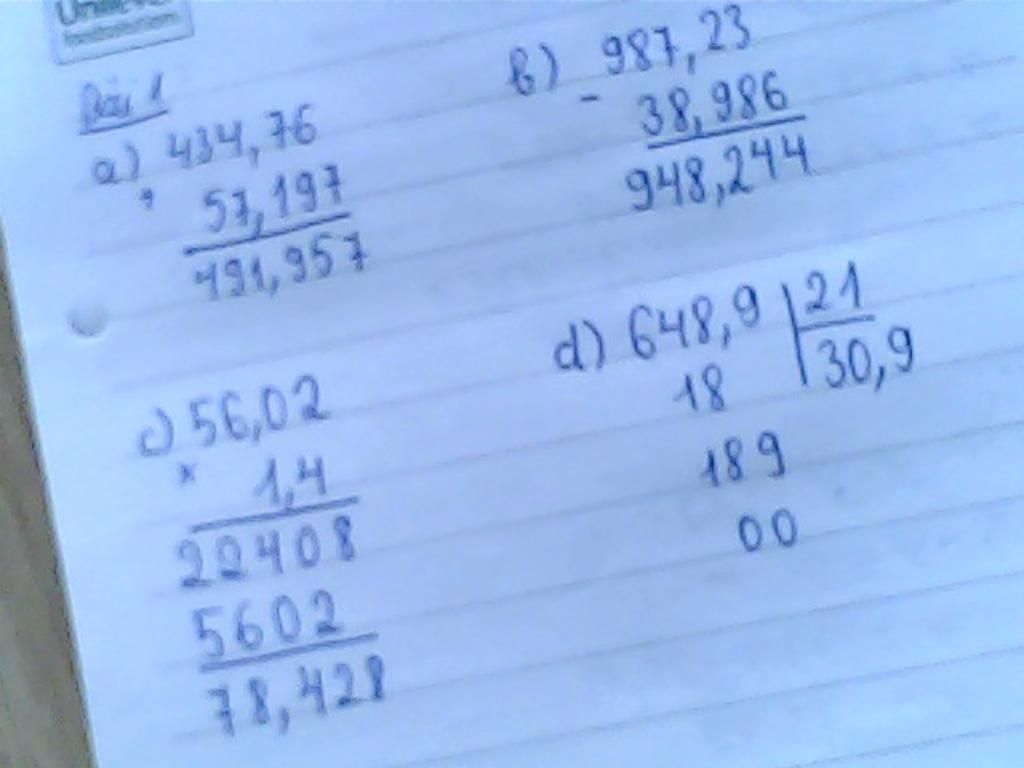 Bài 1
a) 434,76
+ 57,197
491,957
b) 987,23
- 38,986
948,244
c) 56,02
x 1,4
22408
5602
78,428
d) 648,9 21
18 30,9
189
00